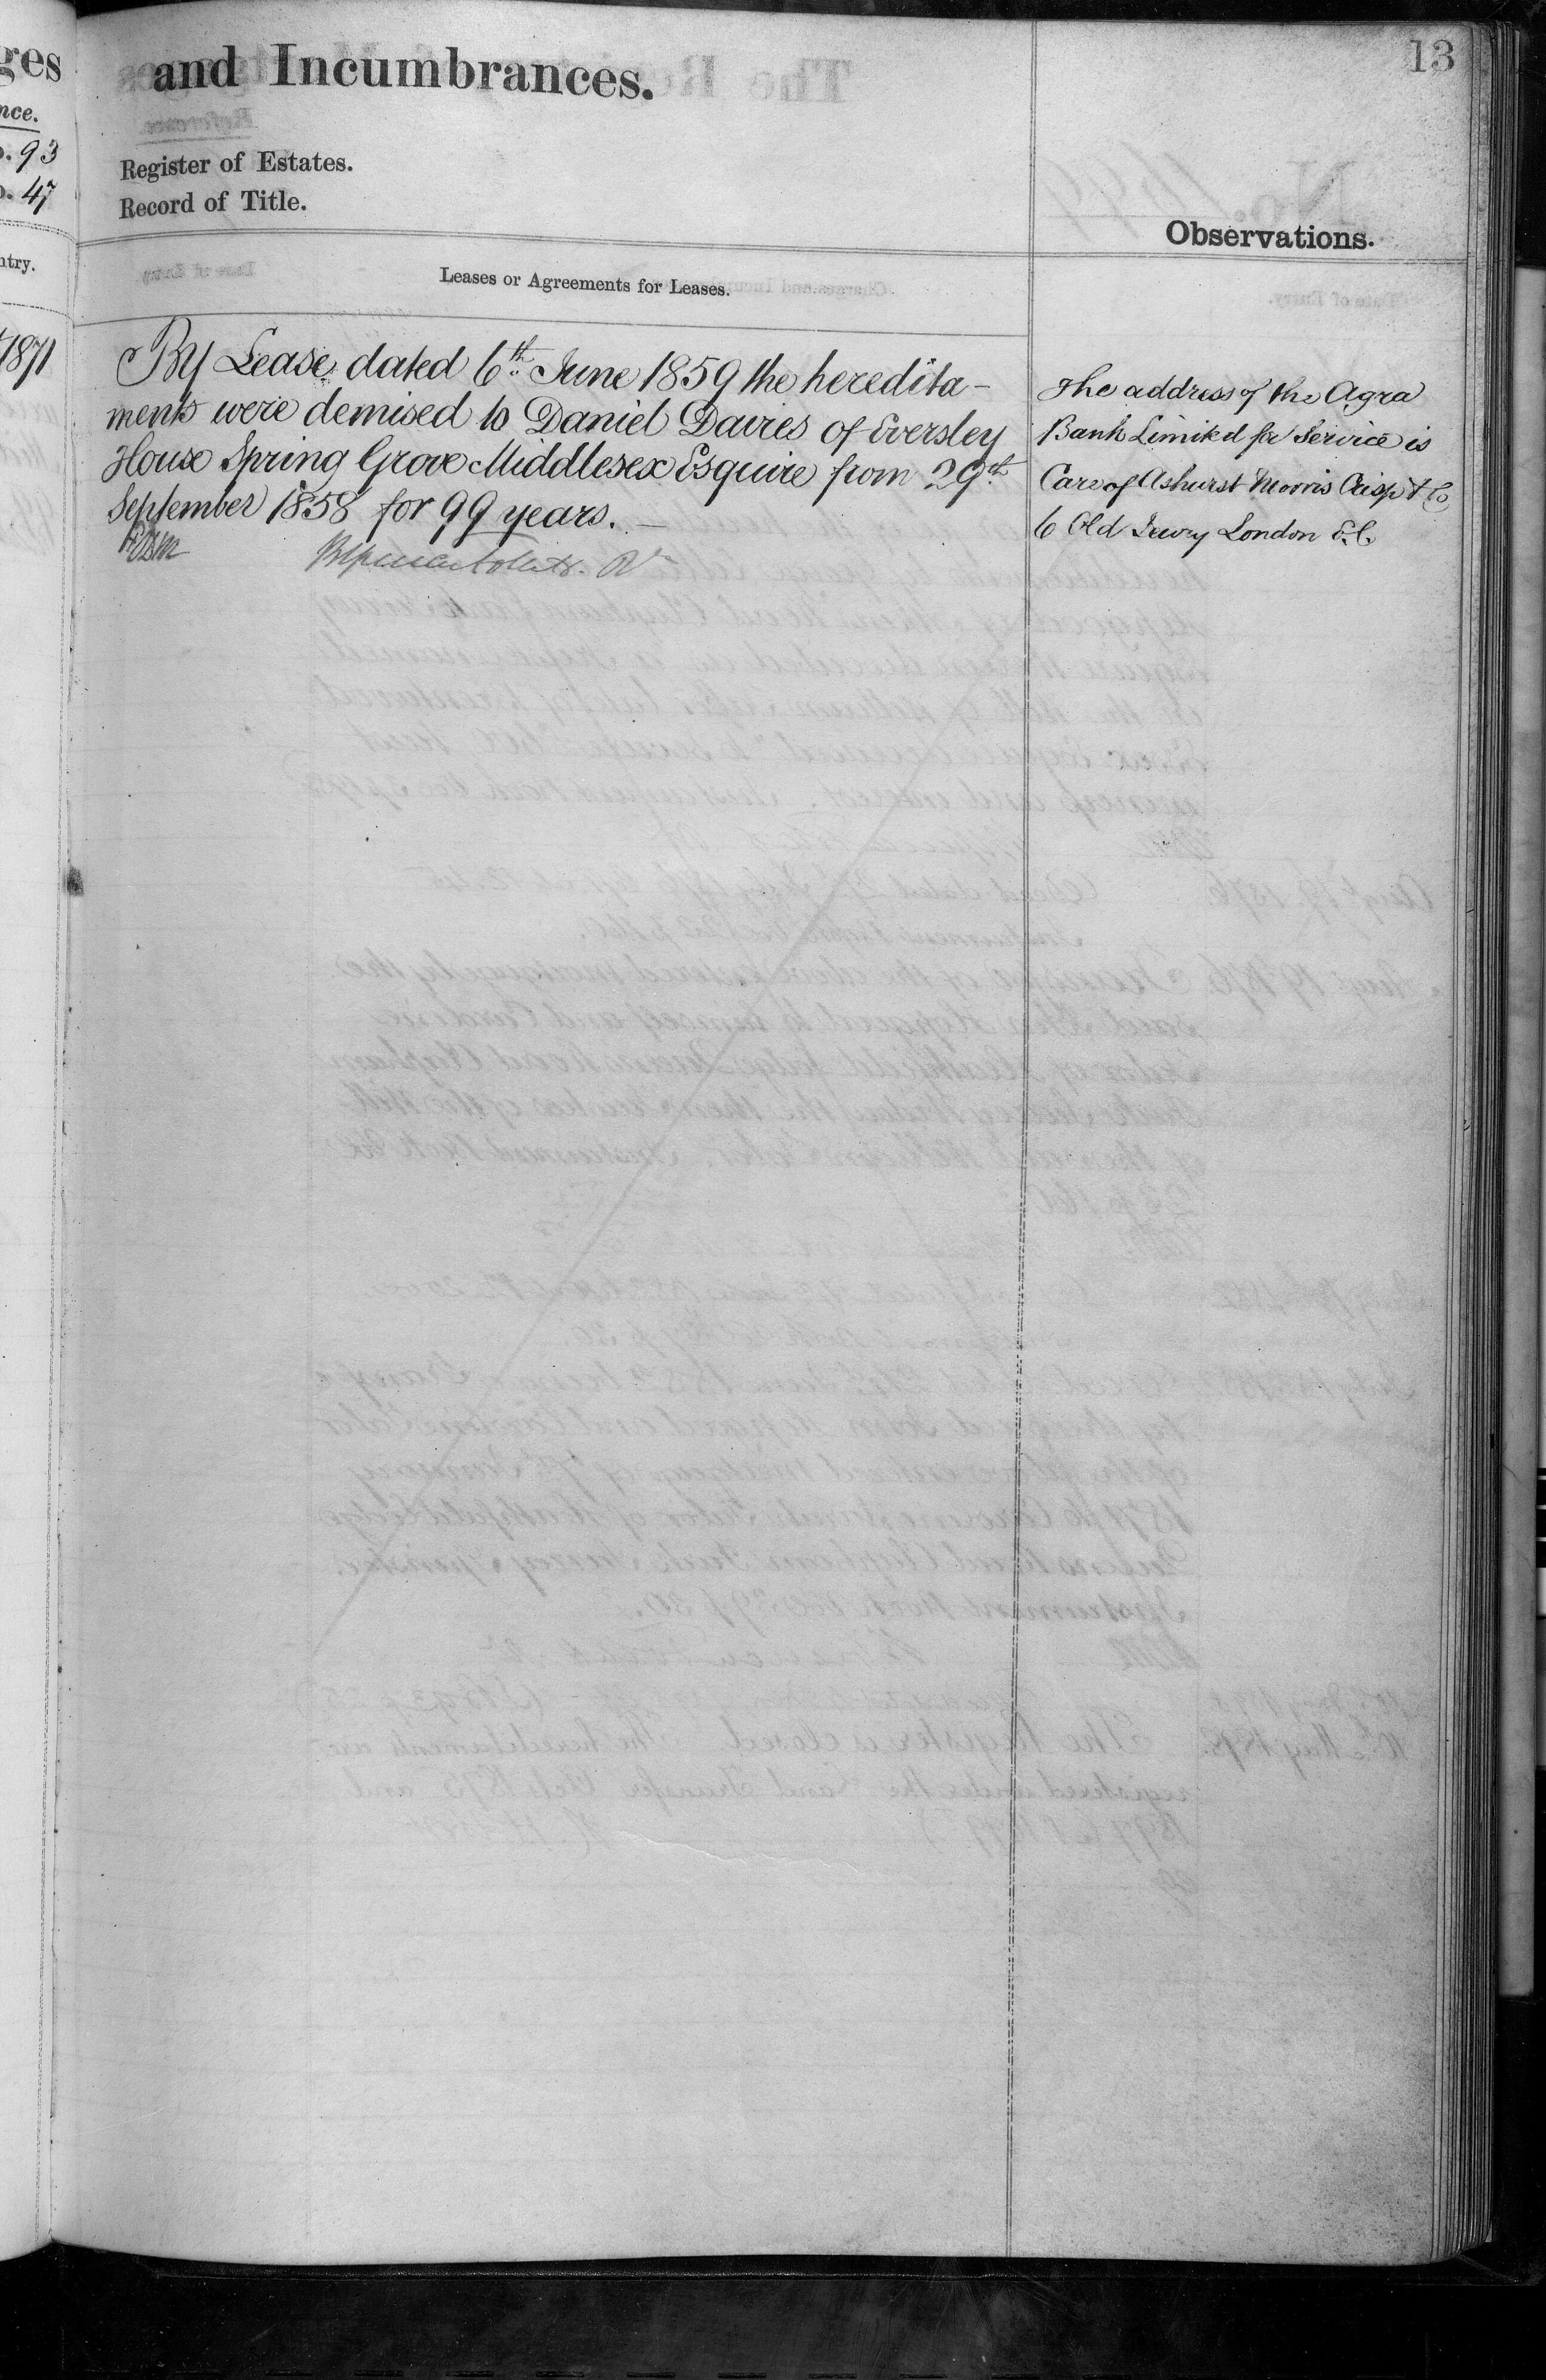 13
and Incumbrances.
Register of Estates.
Record of Title.
Observations.
Leases or Agreements for Leases.
By Lease dated 6th June 1859 the heredita-
ments were demised to Daniel Davies of Eversley
House Spring Grove Middlesex Esquire from 29th
September 1858 for 99 years.
The address of the Agra
Bank Limited for Service is
Care of Ashurst Morris Crisp & Co
6 Old Jewry London E.C.
ges
nce.
o. 93
o. 47
ntry.
1871